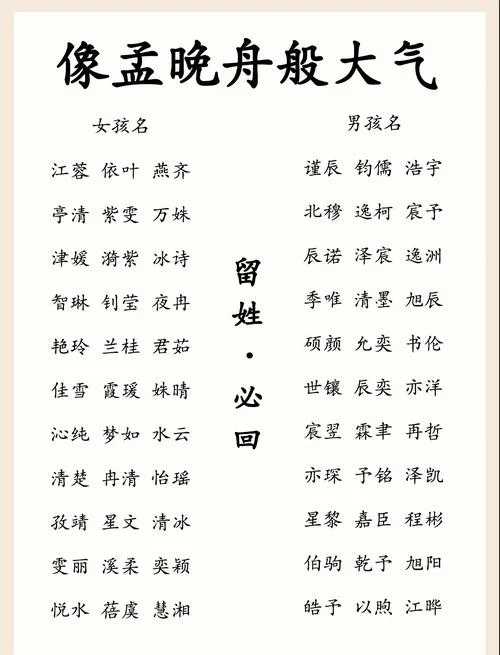 像孟晚舟般大气
女孩名
江蓉 依叶 燕齐
亭清 紫雯 万姝
津媛 漪紫 冰诗
智琳 钊莹 夜冉
艳玲 兰桂 君茹
佳雪 霞瑗 姝晴
沁纯 梦如 水云
清楚 冉清 怡瑶
孜靖 星文 清冰
雯丽 溪柔 奕颖
悦水 蓓虞 慧湘
留姓·必回
男孩名
谨辰 钧儒 浩宇
北穆 逸柯 宸予
辰诺 泽宸 逸洲
季唯 清墨 旭辰
硕颜 允奕 书伦
世镶 辰奕 亦洋
宸翌 霖聿 再哲
亦琛 予铭 泽凯
星黎 嘉臣 程彬
伯驹 乾予 旭阳
皓予 以煦 江晔